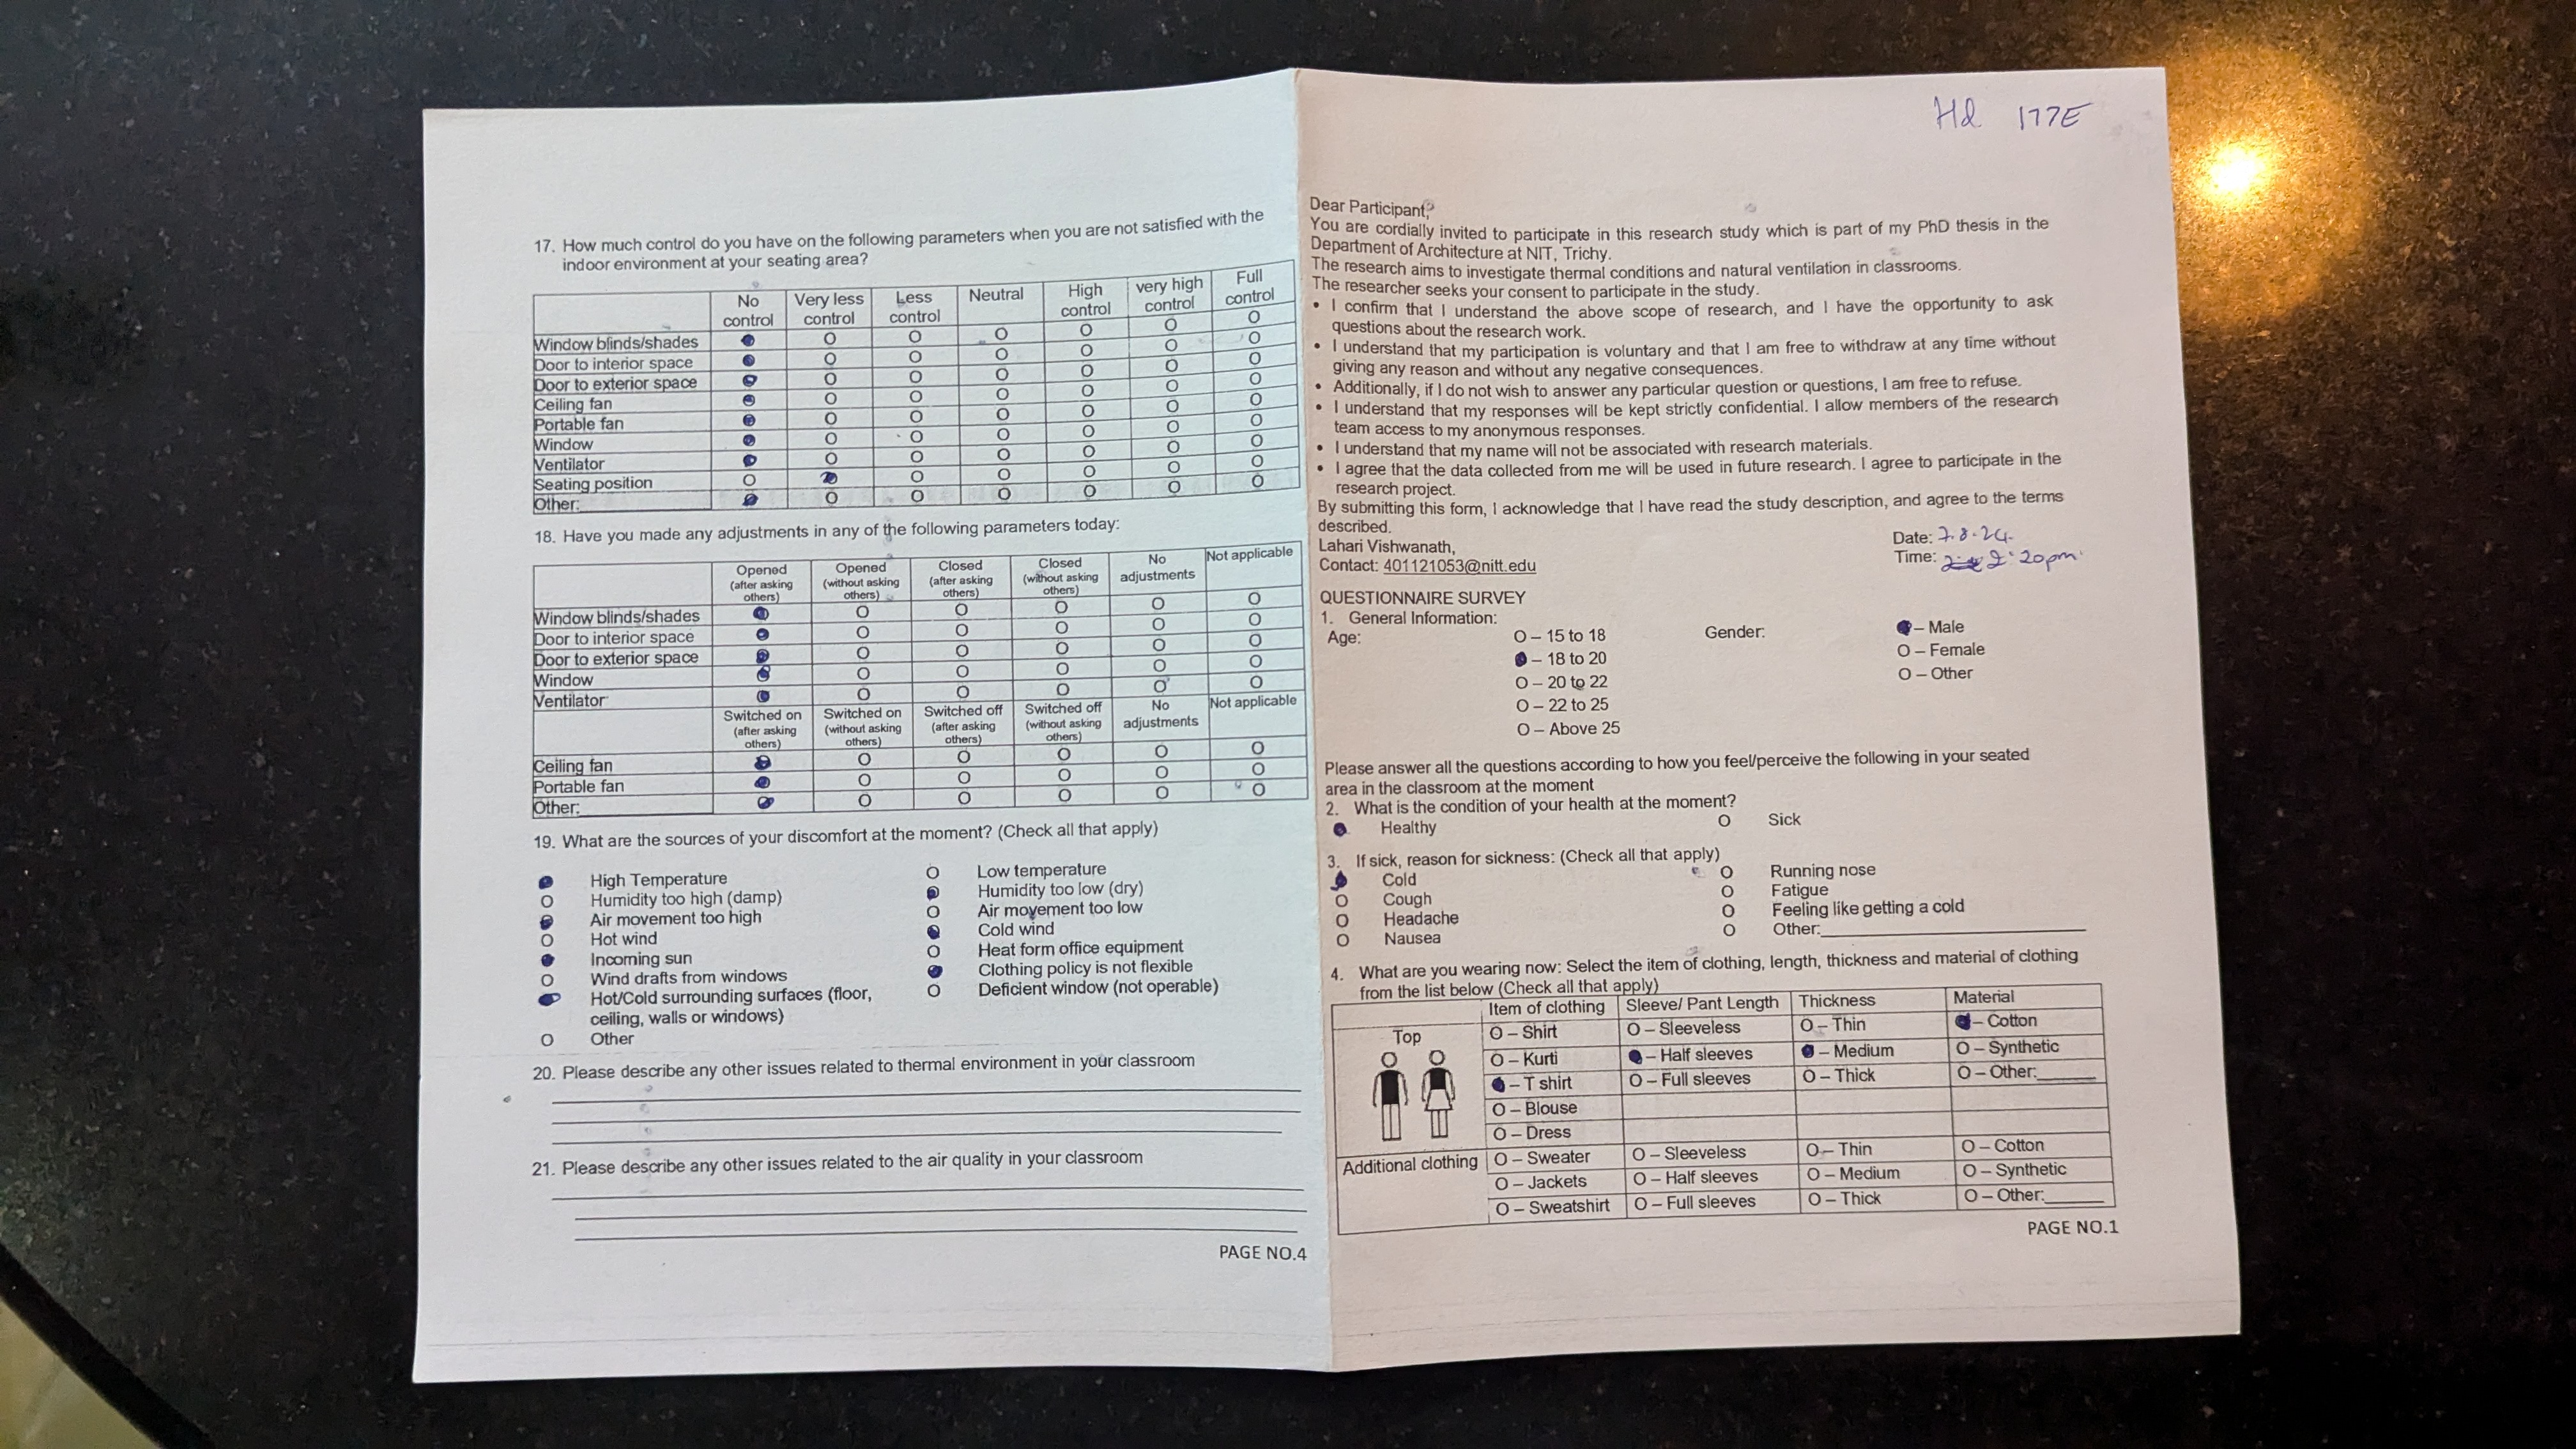 17. How much control do you have on the following parameters when you are not satisfied with the
indoor environment at your seating area?
No control Very less control Less control Neutral High control very high control Full control
Window blinds/shades ● O O O O O O
Door to interior space ● O O O O O O
Door to exterior space ● O O O O O O
Ceiling fan ● O O O O O O
Portable fan ● O O O O O O
Window ● O O O O O O
Ventilator ● O O O O O O
Seating position O ● O O O O O
Other: ● O O O O O O
18. Have you made any adjustments in any of the following parameters today:
Opened (after asking others) Opened (without asking others) Closed (after asking others) Closed (without asking others) No adjustments Not applicable
Window blinds/shades ● O O O O O
Door to interior space ● O O O O O
Door to exterior space ● O O O O O
Window ● O O O O O
Ventilator ● O O O O O
Switched on (after asking others) Switched on (without asking others) Switched off (after asking others) Switched off (without asking others) No adjustments Not applicable
Ceiling fan ● O O O O O
Portable fan ● O O O O O
Other: ● O O O O O
19. What are the sources of your discomfort at the moment? (Check all that apply)
● High Temperature O Low temperature
O Humidity too high (damp) ● Humidity too low (dry)
● Air movement too high O Air movement too low
O Hot wind ● Cold wind
● Incoming sun O Heat form office equipment
O Wind drafts from windows ● Clothing policy is not flexible
● Hot/Cold surrounding surfaces (floor, O Deficient window (not operable)
ceiling, walls or windows)
O Other
20. Please describe any other issues related to thermal environment in your classroom
21. Please describe any other issues related to the air quality in your classroom
PAGE NO.4
Hd 177E
Dear Participant,
You are cordially invited to participate in this research study which is part of my PhD thesis in the
Department of Architecture at NIT, Trichy.
The research aims to investigate thermal conditions and natural ventilation in classrooms.
The researcher seeks your consent to participate in the study.
• I confirm that I understand the above scope of research, and I have the opportunity to ask
questions about the research work.
• I understand that my participation is voluntary and that I am free to withdraw at any time without
giving any reason and without any negative consequences.
• Additionally, if I do not wish to answer any particular question or questions, I am free to refuse.
• I understand that my responses will be kept strictly confidential. I allow members of the research
team access to my anonymous responses.
• I understand that my name will not be associated with research materials.
• I agree that the data collected from me will be used in future research. I agree to participate in the
research project.
By submitting this form, I acknowledge that I have read the study description, and agree to the terms
described.
Lahari Vishwanath, Date: 7.8.24.
Contact: 401121053@nitt.edu Time: 2:20pm.
QUESTIONNAIRE SURVEY
1. General Information:
Age: O – 15 to 18 Gender: ● – Male
● – 18 to 20 O – Female
O – 20 to 22 O – Other
O – 22 to 25
O – Above 25
Please answer all the questions according to how you feel/perceive the following in your seated
area in the classroom at the moment
2. What is the condition of your health at the moment?
● Healthy O Sick
3. If sick, reason for sickness: (Check all that apply)
● Cold O Running nose
O Cough O Fatigue
O Headache O Feeling like getting a cold
O Nausea O Other:
4. What are you wearing now: Select the item of clothing, length, thickness and material of clothing
from the list below (Check all that apply)
Item of clothing Sleeve/ Pant Length Thickness Material
Top O – Shirt O – Sleeveless O – Thin ● – Cotton
O – Kurti ● – Half sleeves ● – Medium O – Synthetic
● – T shirt O – Full sleeves O – Thick O – Other:
O – Blouse
O – Dress
Additional clothing O – Sweater O – Sleeveless O – Thin O – Cotton
O – Jackets O – Half sleeves O – Medium O – Synthetic
O – Sweatshirt O – Full sleeves O – Thick O – Other:
PAGE NO.1